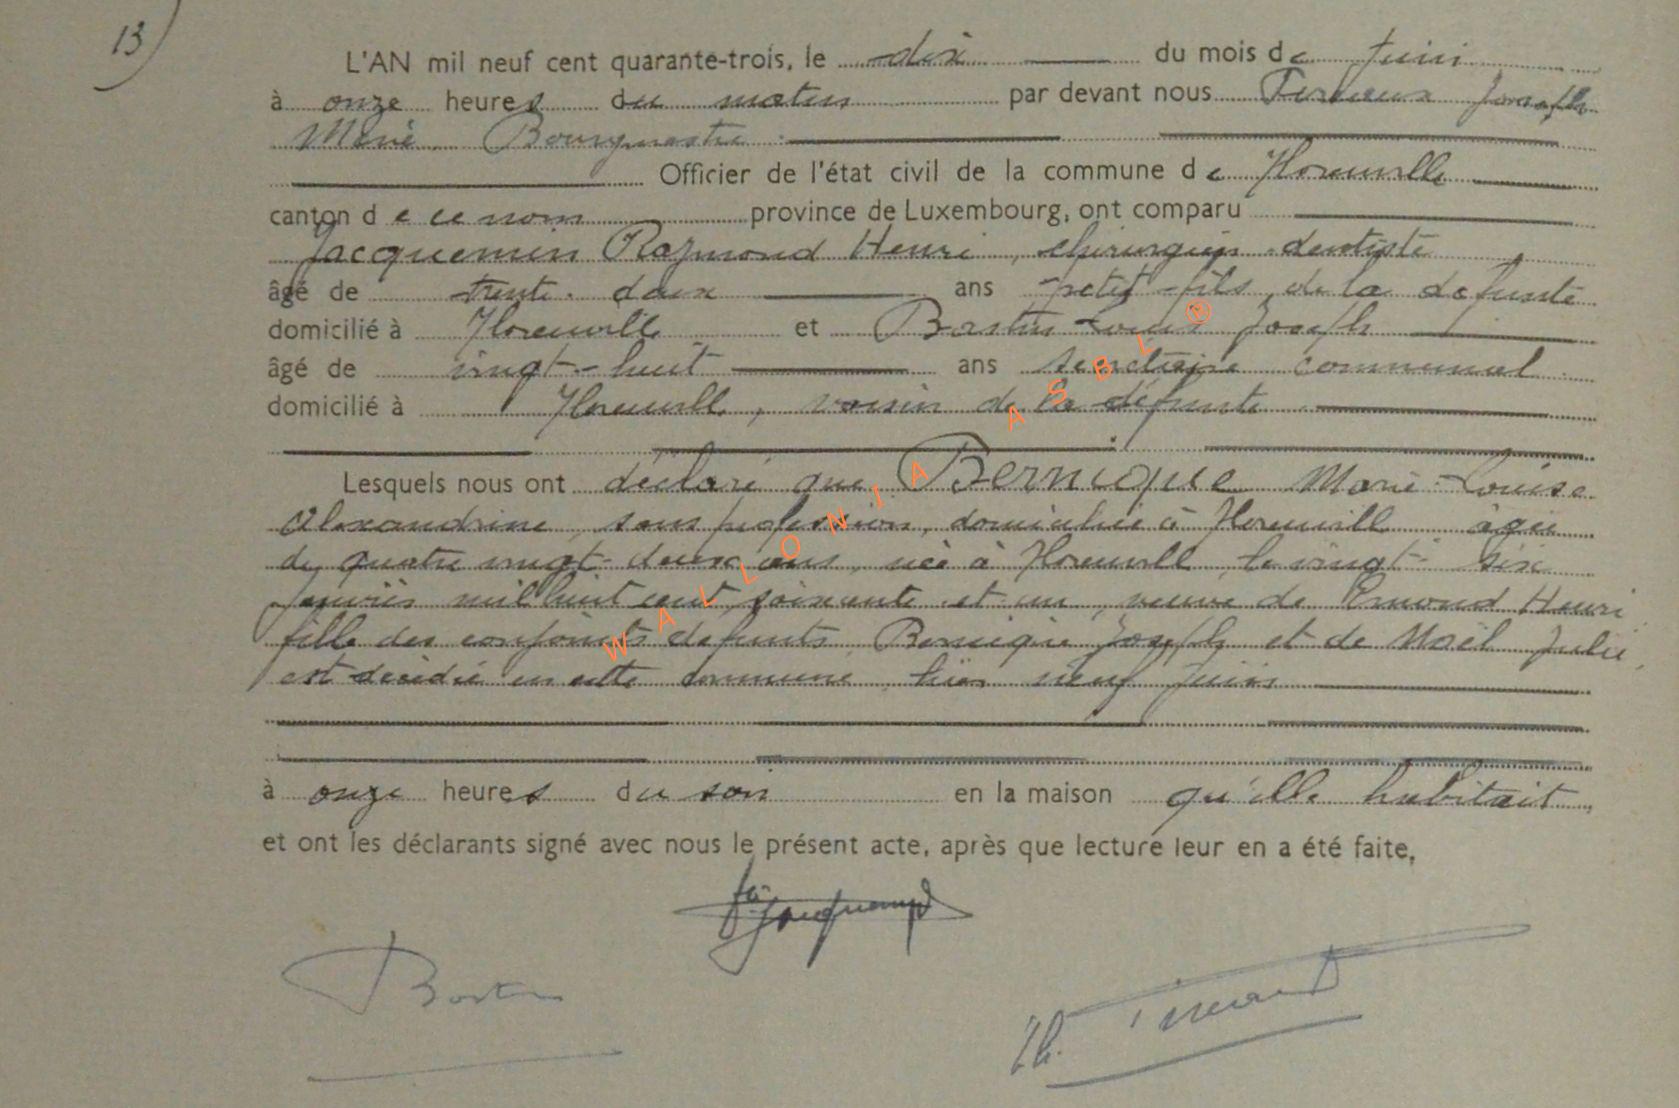 13)
L'AN mil neuf cent quarante-trois, le dix du mois de Juin
à onze heures du matin par devant nous Joseph
Bourgmestre
Officier de l'état civil de la commune de Florenville
canton de ce nom province de Luxembourg, ont comparu
Jacquemin Raymond Henri, chirurgien-dentiste
âgé de trente-deux ans petit-fils de la défunte
domicilié à Florenville et Bastin Louis Joseph
âgé de vingt-huit ans secrétaire communal
domicilié à Florenville, voisin de la défunte
Lesquels nous ont déclaré que Bernique Marie-Louise
Alexandrine, sans profession, domiciliée à Florenville âgée
de quatre vingt-deux ans, née à Florenville, le vingt-six
Janvier mil huit cent soixante et un, veuve de Emond Henri
fille des conjoints défunts Bernique Joseph et de Noël Julie,
est décédée en cette commune hier neuf juin
à onze heures du soir en la maison qu'elle habitait
et ont les déclarants signé avec nous le présent acte, après que lecture leur en a été faite,
Jacquemin
Bastin
WALLONIA ASBL ®